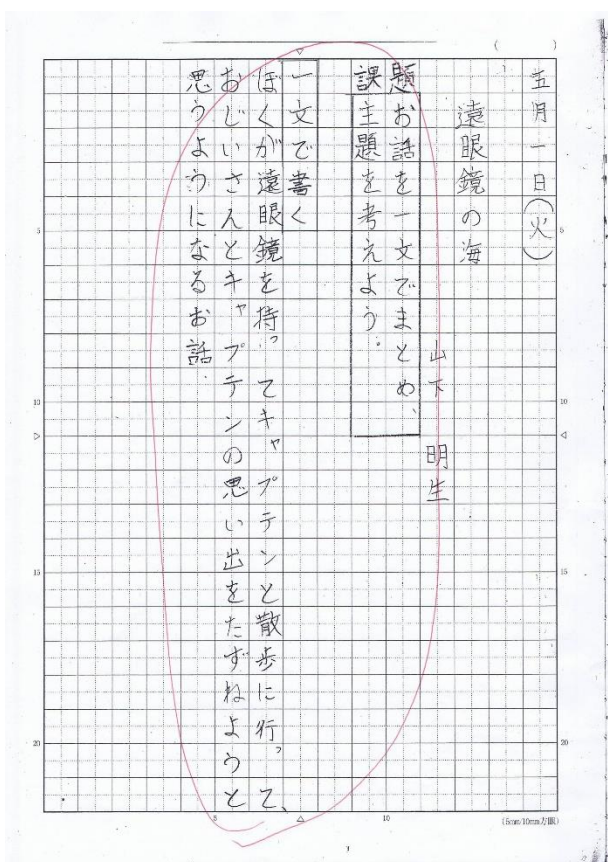 五月一日(火)
遠眼鏡の海
山下 明生
課題
お話を一文でまとめ、
主題を考えよう。
一文で書く
ぼくが遠眼鏡を持ってキャプテンと散歩に行って、
おじいさんとキャプテンの思い出をたずねようと
思うようになるお話.
5
10
15
20
5
10
15
20
5
10
(5mm/10mm方眼)
( )
1